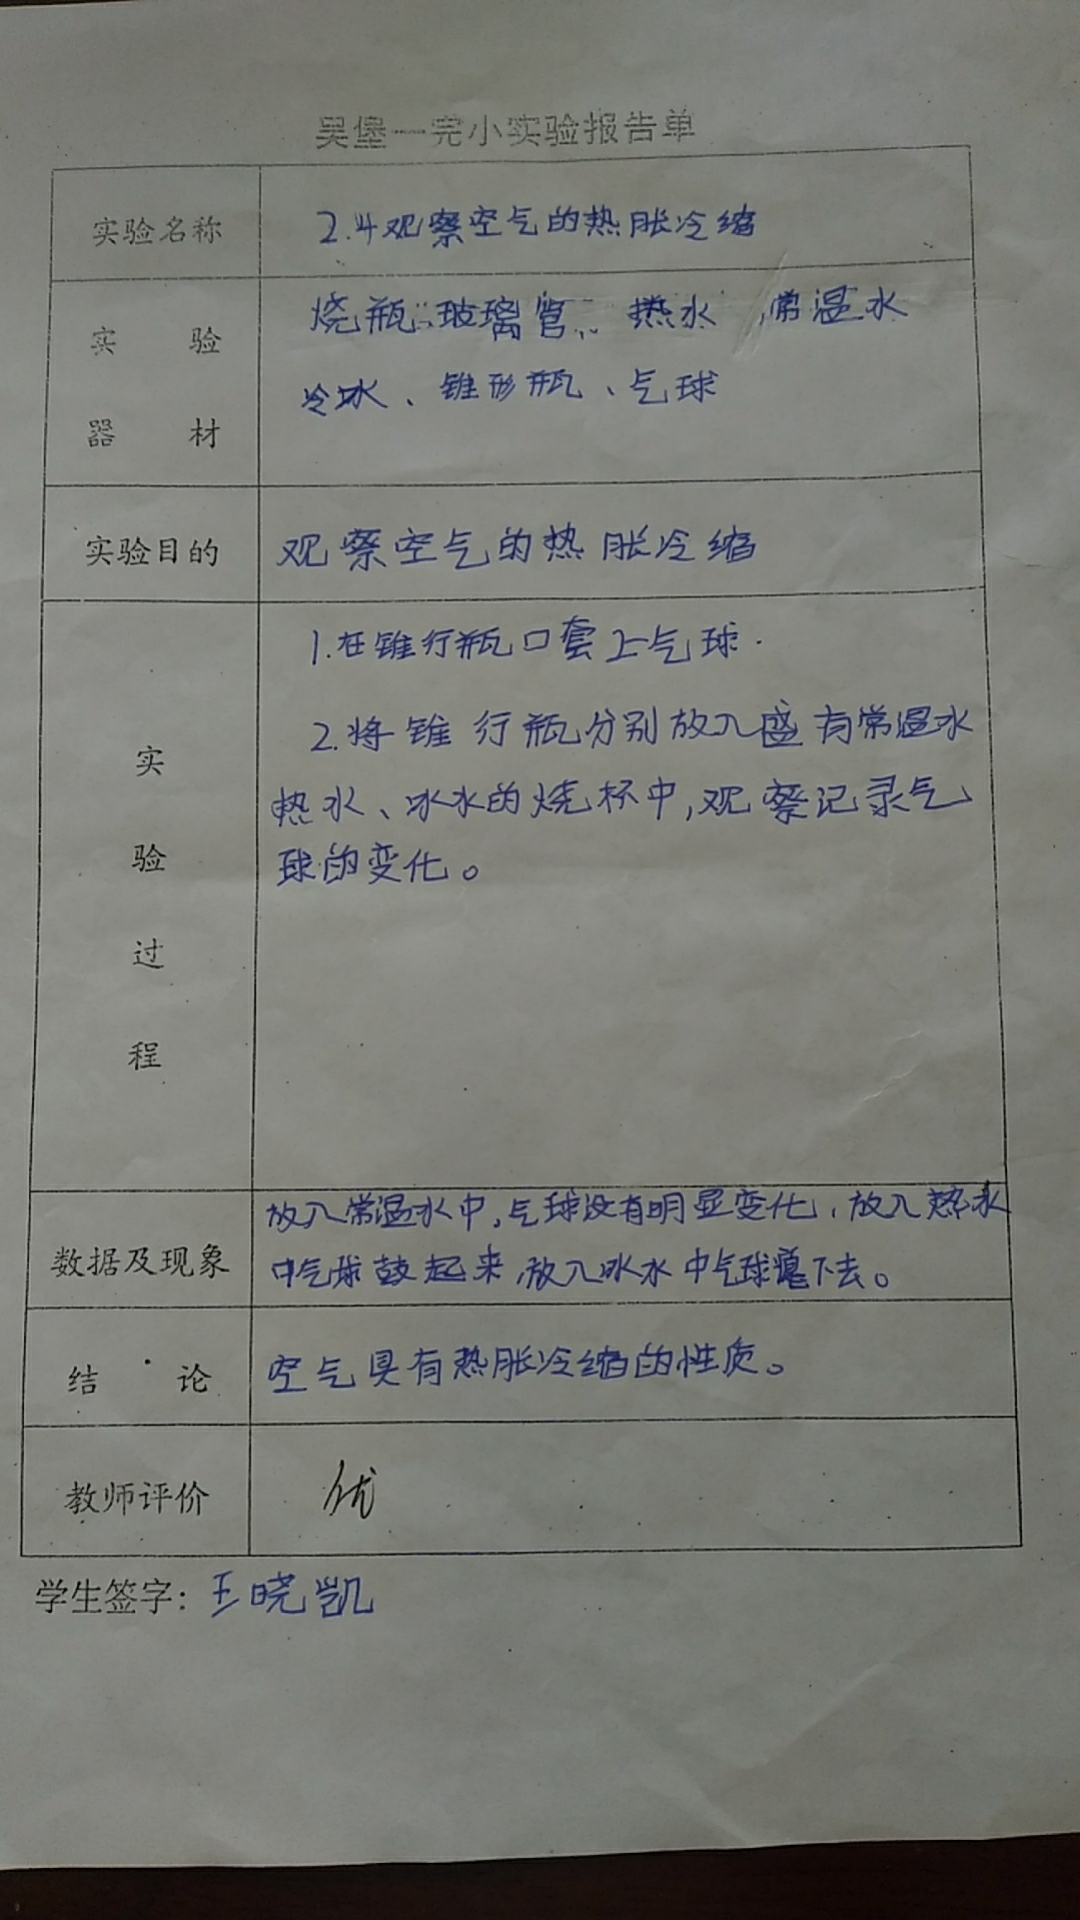 吴堡一完小实验报告单
实验名称
2.4观察空气的热胀冷缩
实 验
器 材
烧瓶、玻璃管、热水、常温水
冷水、锥形瓶、气球
实验目的
观察空气的热胀冷缩
实
验
过
程
1.在锥行瓶口套上气球.
2.将锥行瓶分别放入盛有常温水
热水、冰水的烧杯中,观察记录气
球的变化。
数据及现象
放入常温水中,气球没有明显变化,放入热水
中气球鼓起来,放入冰水中气球下去。
结 论
空气具有热胀冷缩的性质。
教师评价
优
学生签字:王晓凯